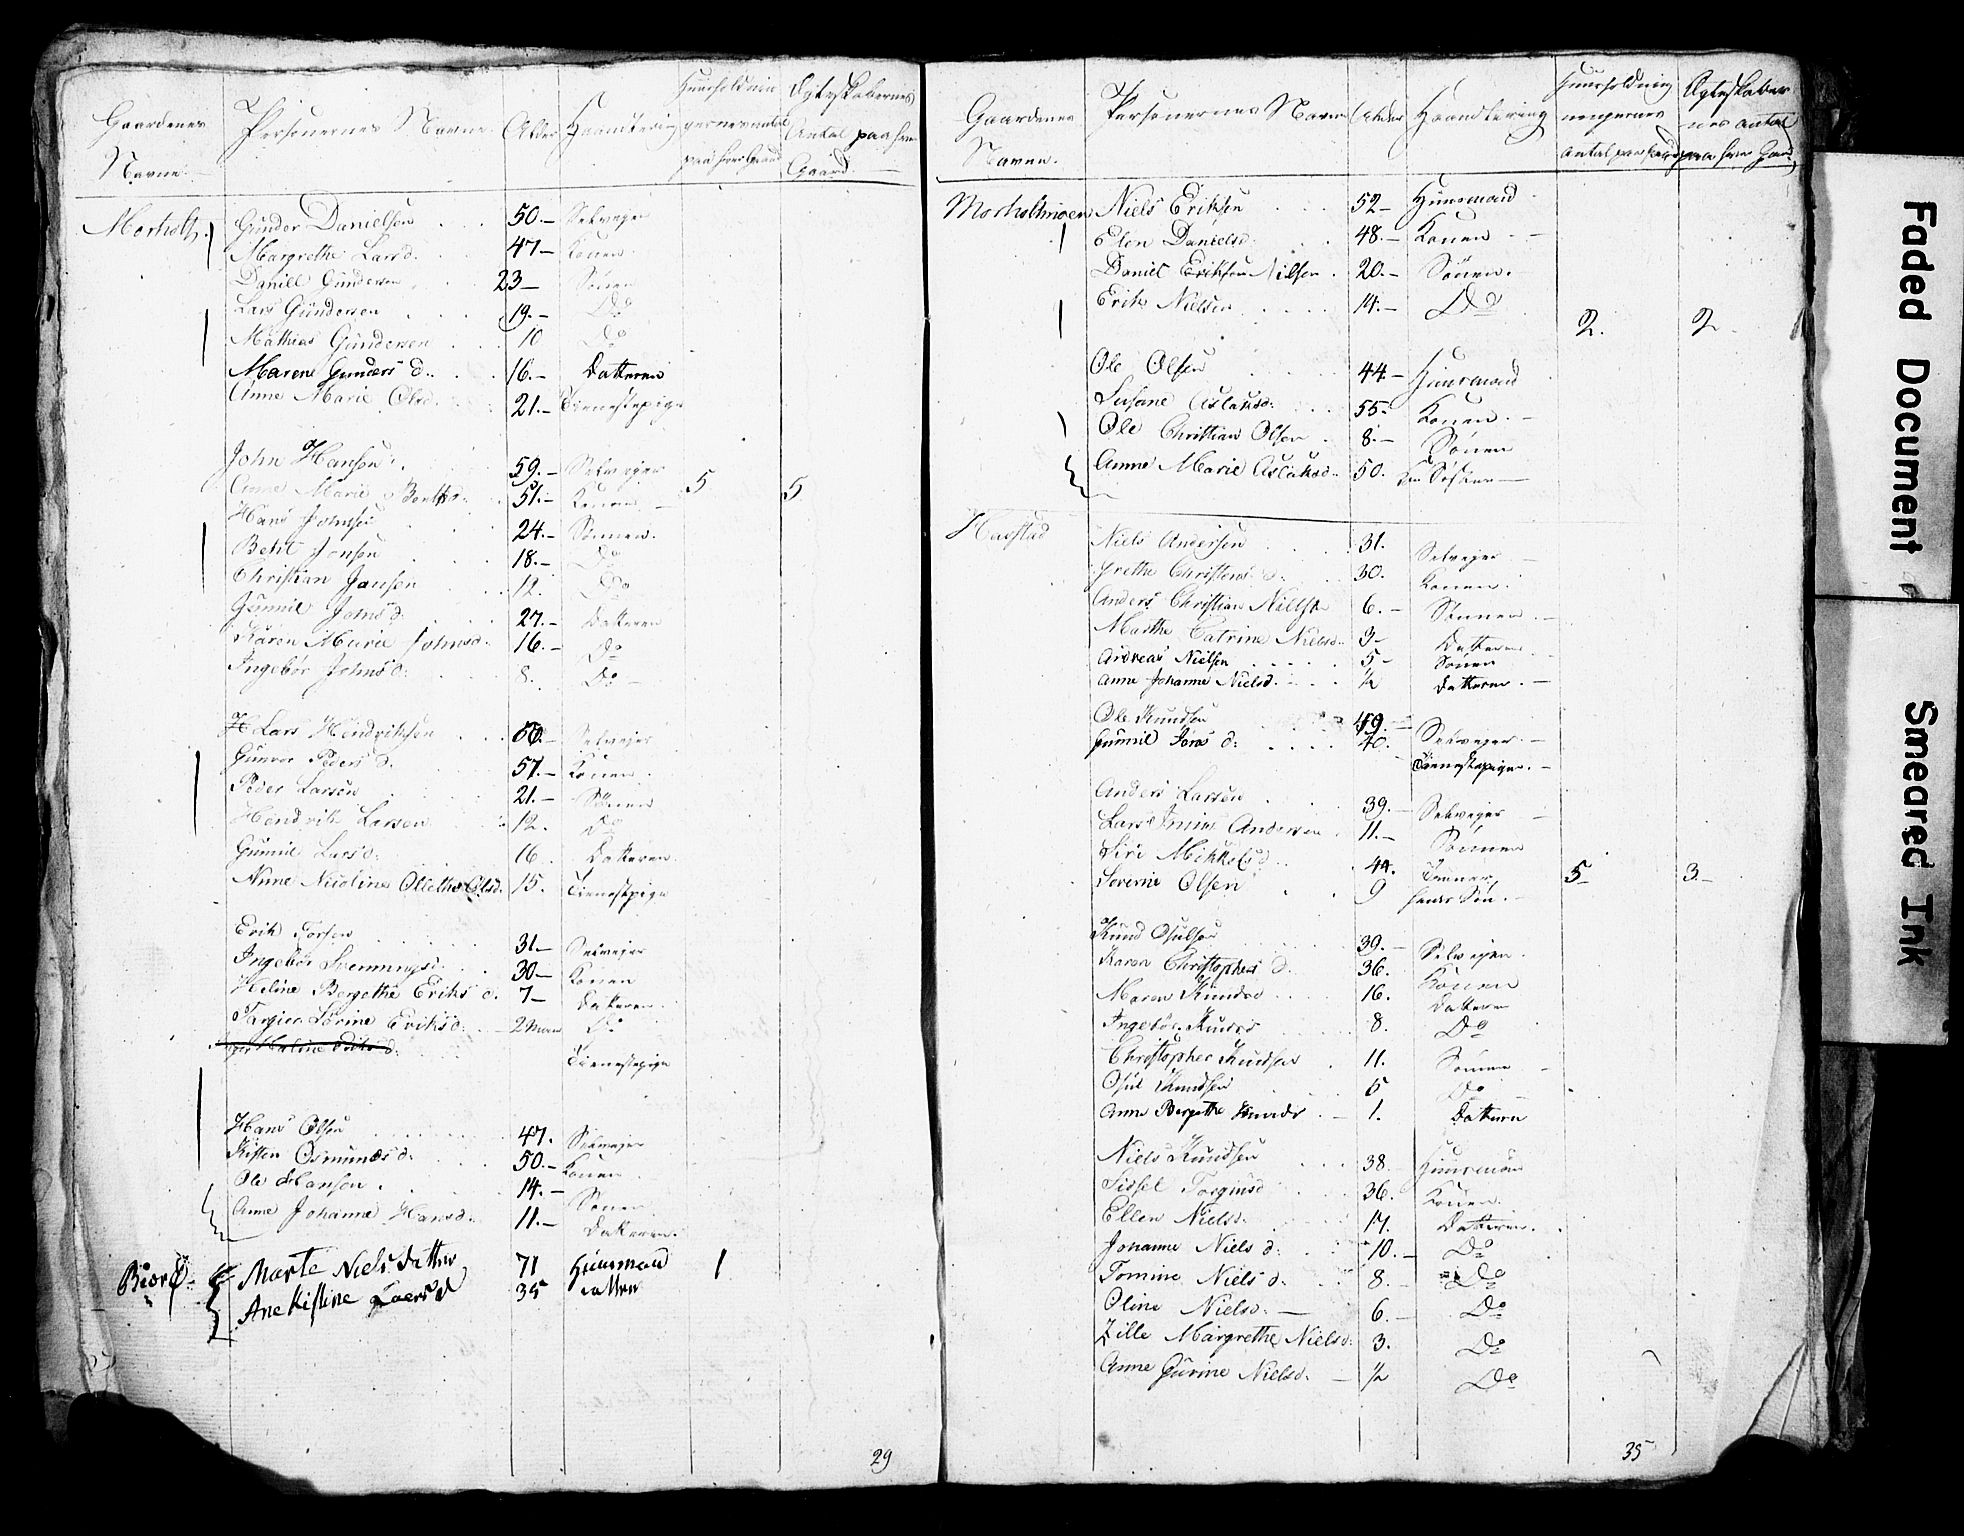 Gaardenes Navne. Personernes Navne Alder Haandtering Huusholdnin gernes antal paa hver Gaard Ægteskabernes Antal paa hver Gaard.
Morholt. Gunder Danielsen 50.— Selveyer
Margrethe Larsd. 47— Konen.
Daniel Gundersen 23— Sönen
Lars Gundersen 19.— Do
Mathias Gundersen 10 Do
Maren Gunders d. 16.— Datteren
Anne Marie Olsd. 21.— Tienestepige
John Hansen 59.— Selveyer 5 5
Anne Marie Bentsd. 51.— Konen. —
Hans Johnsen 24.— Sönnen.
Beht Jonsen 18.— Do
Christian Jansen 12. Do
Gunnil Johns d. 27.— Datteren
Karen Marie Johnsd. 16.— Do
Ingebör Johns d. 8. Do —
Lars Hendriksen 56.— Selveyer
Gunvor Peders d. 57.— Konen.
Peder Larsen 21.— Sönnen
Hendrik Larsen 12. Do
Gunnil Larsd. 16. Datteren.
Anne Nicoline Ollethe Olsd. 15. Tienestpige
Erik Torsen 31.— Selveyer
Ingebör Svennungsd. 30— Konen
Heline Bergethe Eriks d. 7— Datteren.
Torine Eriksd. — 2 Do
Tienestepige
Hans Olsen 47. Selveyer
Kisten Osmunds d. 50.— Konen
Ole Hansen. 14.— Sönen.
Anne Johanne Hansd. 11.— Datteren.
Biørd. Marte Niels datter 71 Huusmand 1
Ane Kistine Laersd 35 datter
29
Gaardenes Navne. Personernes Navne Alder Haandtering Huusholdning nengernes Antal paa hver Gaard Ægteskaber nes antal paa hver Gaard
Morholtmoen Niels Eriksen 52— Huusmand
Elen Danielsd. 48.— Konen —
Daniel Eriksen Nilsen. 20.— Sönen.
Erik Nielsen 14.— Do
2. 2.
Ole Olsen 44— Huusmand
Susane Aslaksd. 55. Konen. —
Ole Christian Olsen. 8.— Sönen
Anne Marie Aslaksd. 50. Söster —
Haastad Niels Andersen 31. Selveyer —
Grethe Christens d. 30. Konen.
Anders Christian Nielse 6.— Sönnen. —
Marthe Catrine Nielsd. 3— Datteren
Andreas Nielsen 5— Sönen
Anne Johanne Nielsd. ½ Datteren. —
Ole Knudsen 49.— Selveyer. —
Gunnil Jens d. 40. Tienestepige. —
Anders Larsen 39.— Selveyer —
Lars Andersen 11.— Sönnen
Siri Mikkelsd. 44. 5— 3—
Soverin Olsen 9 hendes Sön. —
Knud Osulsen 39.— Selveyer.
Karen Christophers d. 36. Konen
Maren Knudsd 16. Datteren
Ingebör Knudsd 8. Do
Christopher Knudsen 11. Sönnen —
Osul Knudsen 5 Do
Anne Bergethe Knudsd. 1. Datteren
Niels Knudsen 38. Huusman
Sissel Torgiusd 36. Konen.
Ellen Nielsd. 17. Datteren.
Johanne Niels d. 10.— Do
Tomine Niels d. 8.— Do
Oline Nielsd.— 6.— Do
Zille Margrethe Nielsd. 3. Do
Anne Gurine Nielsd. — ½ Do
35
Faded Document
Smeared Ink